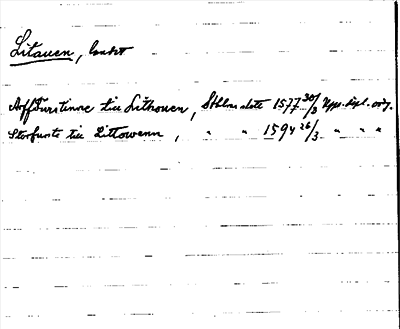 Litauen, landet
Arffurstinne till Lithouen, Sthlms slott 1577 30/8 Upps. dipl. orig.
Storfurste till Littowenn, " " 1594 26/3 " " "